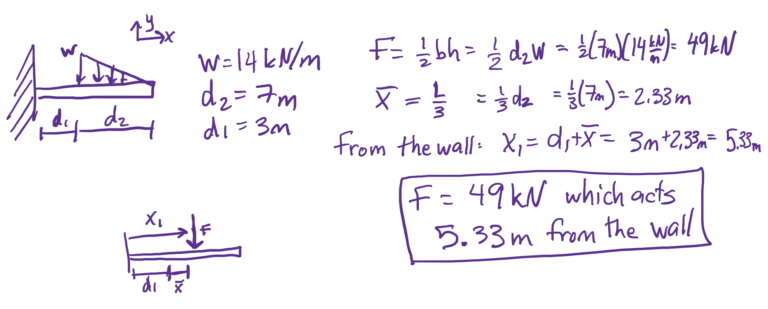 y
x
w
d₁ d₂
w = 14 kN/m
d₂ = 7m
d₁ = 3m
F = 1/2 bh = 1/2 d₂w = 1/2(7m)(14 kN/m) = 49 kN
x̄ = L/3 = 1/3 d₂ = 1/3(7m) = 2.33 m
from the wall: x₁ = d₁+x̄ = 3m+2.33m = 5.33m
F = 49 kN which acts
5.33 m from the wall
x₁
F
d₁ x̄